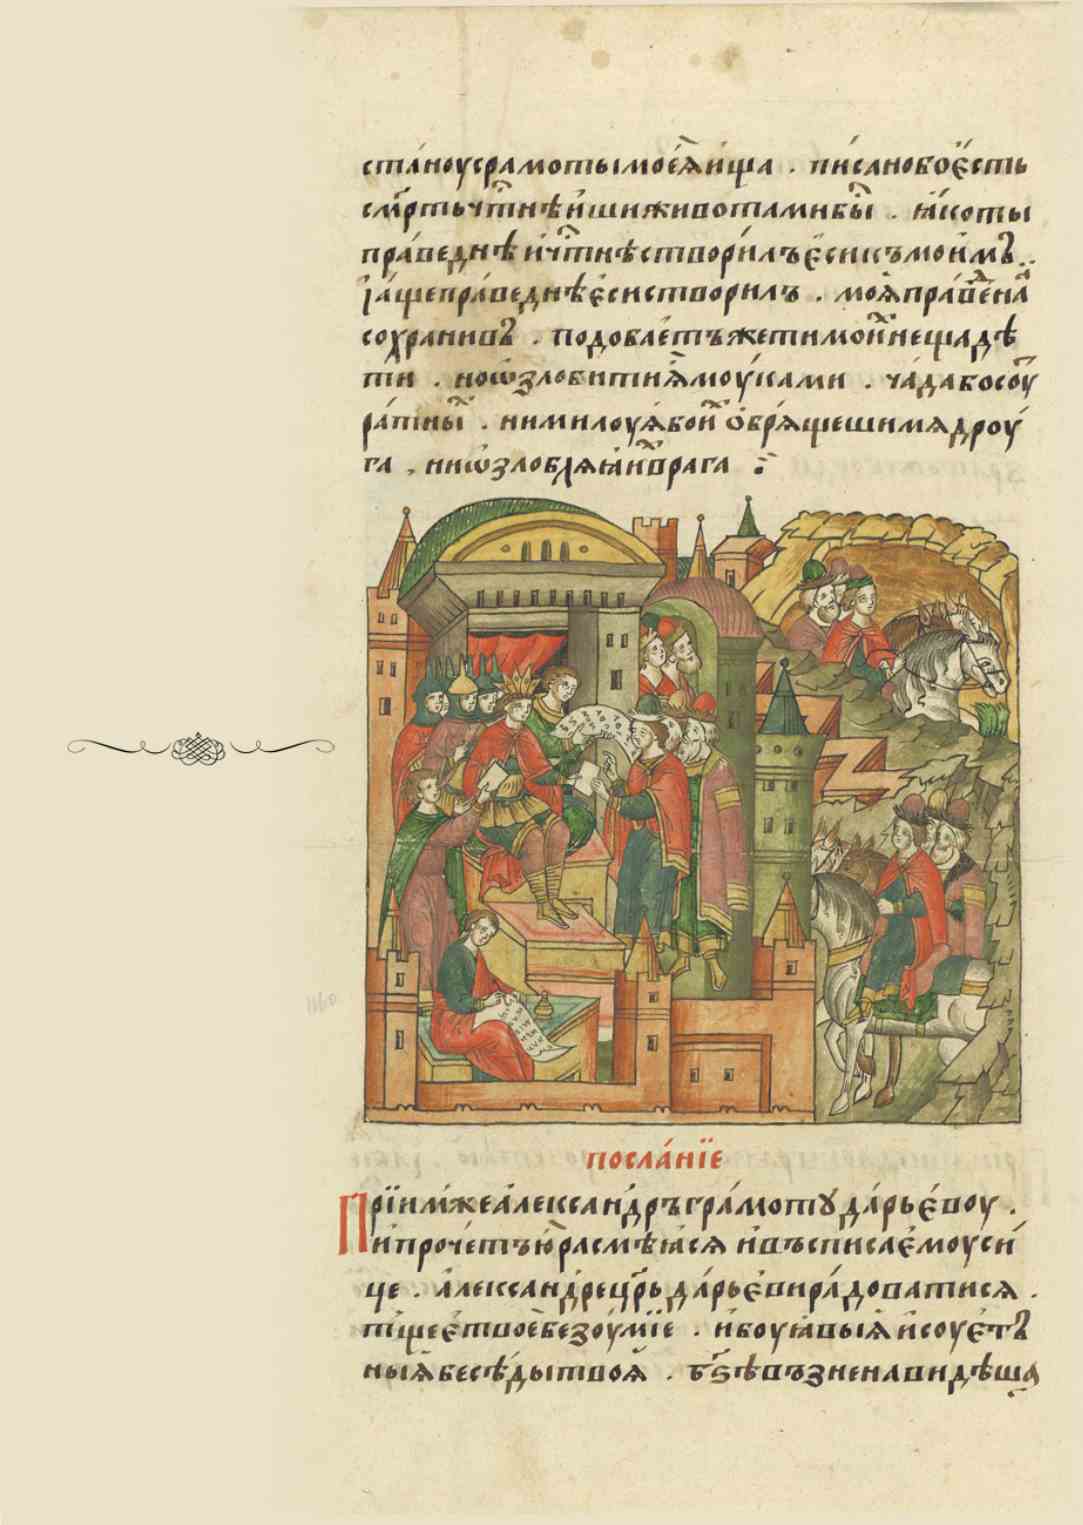 стано усрамоты моеѧ ища . писано бо есть
смр҃ть чт҃нѣиши живота ми бы . ꙗко ты
праведнѣ и чт҃нѣ створилъ еси къ моимъ .
і аще праведнѣ еси створилъ . моѧ правенаа
сохранивъ . подобаетъ же ти моих не щадѣ
ти . но ѡзлобити ѧ моуками . чада бо соу
ратных . ни милоуѧ бо их обрѧщеши мѧ дроу
га , ни ѡзлоблѧꙗ их врага :
посланїе
Прїим же александръ грамотꙋ дарьевоу .
и прочетъ ю расмѣꙗсѧ и въсписа емоу си
це . александре цр҃ь дарьеви радоватисѧ .
тщее твое безоумїе . и боуꙗвыѧ и соует
ныѧ беседы твоѧ . бѕѣ възненавидѣша